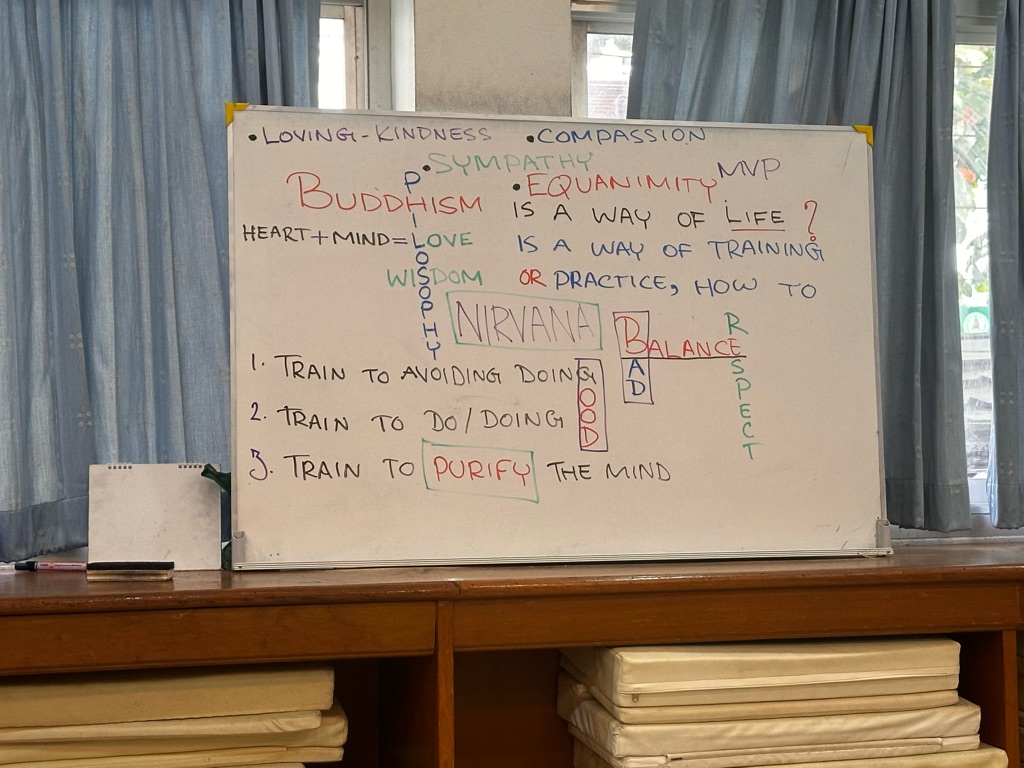 • LOVING-KINDNESS • COMPASSION
• SYMPATHY MVP
• EQUANIMITY
BUDDHISM IS A WAY OF LIFE ?
HEART+MIND=LOVE IS A WAY OF TRAINING
WISDOM OR PRACTICE, HOW TO
PHILOSOPHY
NIRVANA
BALANCE
BAD
RESPECT
1. TRAIN TO AVOIDING DOING
GOOD
2. TRAIN TO DO/DOING
3. TRAIN TO PURIFY THE MIND